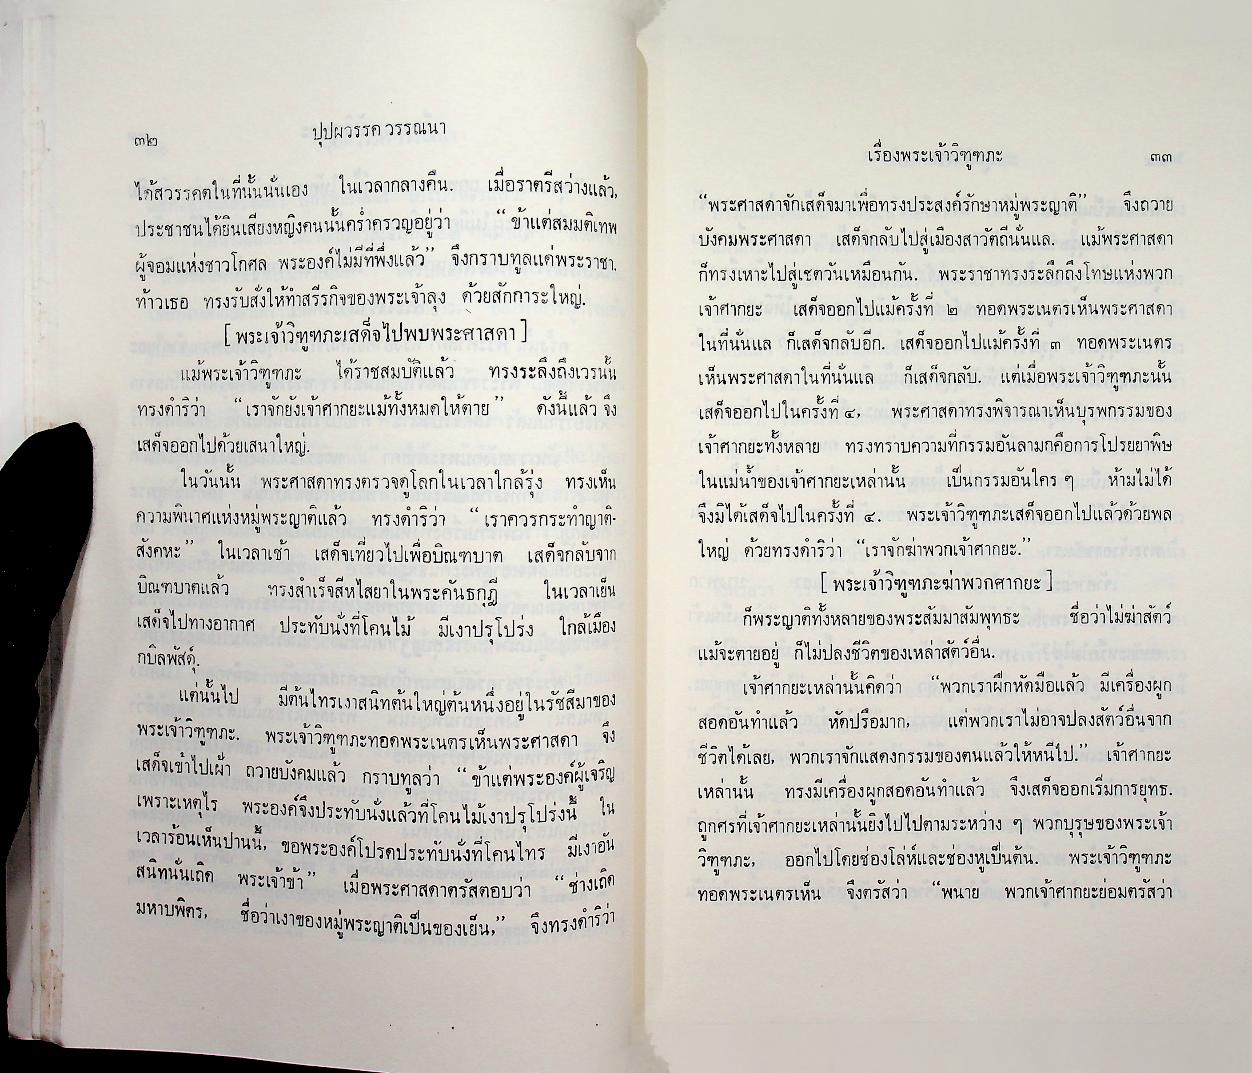 ๓๒
ปุปผวรรค วรรณนา
ได้สวรรคตในที่นั้นนั่นเอง ในเวลากลางคืน. เมื่อราตรีสว่างแล้ว,
ประชาชนได้ยินเสียงหญิงคนนั้นคร่ำครวญอยู่ว่า “ข้าแต่สมมติเทพ
ผู้จอมแห่งชาวโกศล พระองค์ไม่มีที่พึ่งแล้ว” จึงกราบทูลแด่พระราชา.
ท้าวเธอ ทรงรับสั่งให้ทำสรีรกิจของพระเจ้าลุง ด้วยสักการะใหญ่.
[ พระเจ้าวิฑูฑภะเสด็จไปพบพระศาสดา ]
แม้พระเจ้าวิฑูฑภะ ได้ราชสมบัติแล้ว ทรงระลึงถึงเวรนั้น
ทรงดำริว่า “เราจักยังเจ้าศากยะแม้ทั้งหมดให้ตาย” ดังนี้แล้ว จึง
เสด็จออกไปด้วยเสนาใหญ่.
ในวันนั้น พระศาสดาทรงตรวจดูโลกในเวลาใกล้รุ่ง ทรงเห็น
ความพินาศแห่งหมู่พระญาติแล้ว ทรงดำริว่า “เราควรกระทำญาติ-
สังคหะ” ในเวลาเช้า เสด็จเที่ยวไปเพื่อบิณฑบาต เสด็จกลับจาก
บิณฑบาตแล้ว ทรงสำเร็จสีหไสยาในพระคันธกุฎี ในเวลาเย็น
เสด็จไปทางอากาศ ประทับนั่งที่โคนไม้ มีเงาปรุโปร่ง ใกล้เมือง
กบิลพัสดุ์.
แต่นั้นไป มีต้นไทรเงาสนิทต้นใหญ่ต้นหนึ่งอยู่ในรัชสีมาของ
พระเจ้าวิฑูฑภะ. พระเจ้าวิฑูฑภะทอดพระเนตรเห็นพระศาสดา จึง
เสด็จเข้าไปเฝ้า ถวายบังคมแล้ว กราบทูลว่า “ข้าแต่พระองค์ผู้เจริญ
เพราะเหตุไร พระองค์จึงประทับนั่งแล้วที่โคนไม้เงาปรุโปร่งนี้ ใน
เวลาร้อนเห็นปานนี้, ขอพระองค์โปรดประทับนั่งที่โคนไทร มีเงาอัน
สนิทนั่นเถิด พระเจ้าข้า” เมื่อพระศาสดาตรัสตอบว่า “ช่างเถิด
มหาบพิตร, ชื่อว่าเงาของหมู่พระญาติเป็นของเย็น,” จึงทรงดำริว่า
เรื่องพระเจ้าวิฑูฑภะ
๓๓
“พระศาสดาจักเสด็จมาเพื่อทรงประสงค์รักษาหมู่พระญาติ” จึงถวาย
บังคมพระศาสดา เสด็จกลับไปสู่เมืองสาวัตถีนั่นแล. แม้พระศาสดา
ก็ทรงเหาะไปสู่เชตวันเหมือนกัน. พระราชาทรงระลึกถึงโทษแห่งพวก
เจ้าศากยะ เสด็จออกไปแม้ครั้งที่ ๒ ทอดพระเนตรเห็นพระศาสดา
ในที่นั่นแล ก็เสด็จกลับอีก. เสด็จออกไปแม้ครั้งที่ ๓ ทอดพระเนตร
เห็นพระศาสดาในที่นั่นแล ก็เสด็จกลับ. แต่เมื่อพระเจ้าวิฑูฑภะนั้น
เสด็จออกไปในครั้งที่ ๔, พระศาสดาทรงพิจารณาเห็นบุรพกรรมของ
เจ้าศากยะทั้งหลาย ทรงทราบความที่กรรมอันลามกคือการโปรยยาพิษ
ในแม่น้ำของเจ้าศากยะเหล่านั้น เป็นกรรมอันใคร ๆ ห้ามไม่ได้
จึงมิได้เสด็จไปในครั้งที่ ๔. พระเจ้าวิฑูฑภะเสด็จออกไปแล้วด้วยพล
ใหญ่ ด้วยทรงดำริว่า “เราจักฆ่าพวกเจ้าศากยะ.”
[ พระเจ้าวิฑูฑภะฆ่าพวกศากยะ ]
ก็พระญาติทั้งหลายของพระสัมมาสัมพุทธะ ชื่อว่าไม่ฆ่าสัตว์
แม้จะตายอยู่ ก็ไม่ปลงชีวิตของเหล่าสัตว์อื่น.
เจ้าศากยะเหล่านั้นคิดว่า “พวกเราฝึกหัดมือแล้ว มีเครื่องผูก
สอดอันทำแล้ว หัดปรือมาก, แต่พวกเราไม่อาจปลงสัตว์อื่นจาก
ชีวิตได้เลย, พวกเราจักแสดงกรรมของตนแล้วให้หนีไป.” เจ้าศากยะ
เหล่านั้น ทรงมีเครื่องผูกสอดอันทำแล้ว จึงเสด็จออกเริ่มการยุทธ.
ถูกศรที่เจ้าศากยะเหล่านั้นยิงไปไปตามระหว่าง ๆ พวกบุรุษของพระเจ้า
วิฑูฑภะ, ออกไปโดยช่องโล่ห์และช่องหูเป็นต้น. พระเจ้าวิฑูฑภะ
ทอดพระเนตรเห็น จึงตรัสว่า “พนาย พวกเจ้าศากยะย่อมตรัสว่า